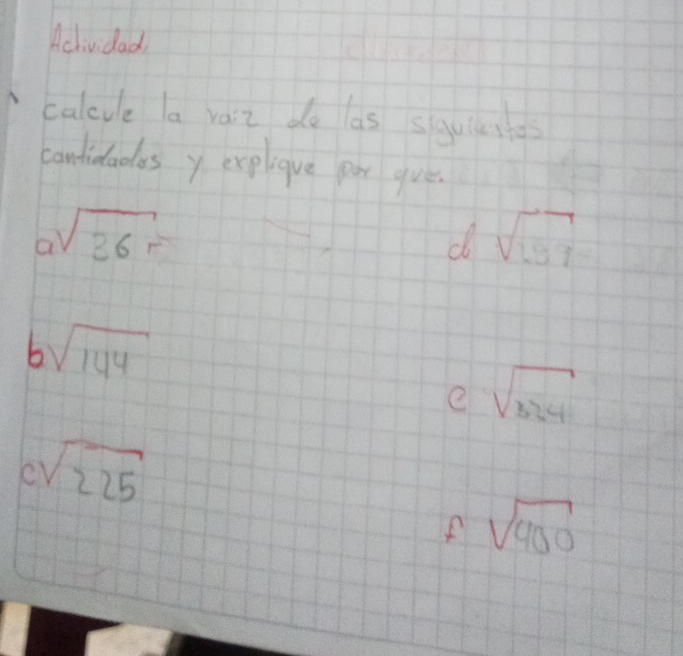 Actividad
calcule la raiz de las siguientes
cantidades y explique por que.
a √36 =
d
b √144
e √324
c √225
f √400